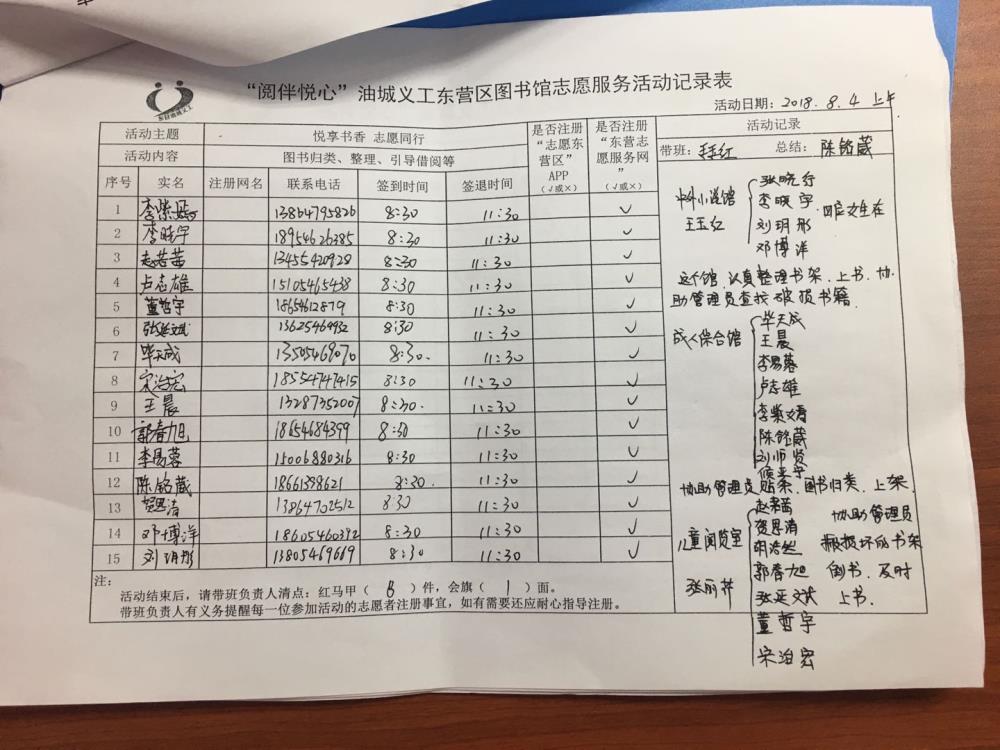 “阅伴悦心”油城义工东营区图书馆志愿服务活动记录表
活动日期：2018.8.4 上午
活动主题 悦享书香 志愿同行
活动内容 图书归类、整理、引导借阅等
是否注册“志愿东营区”APP（√或×）
是否注册“东营志愿服务网”（√或×）
活动记录
带班：王玉红 总结：陈铭葳
序号 实名 注册网名 联系电话 签到时间 签退时间
1 李紫嫣 13864795826 8:30 11:30 √
2 李晓宇 18954626285 8:30 11:30 √
3 赵若茜 13455420928 8:30 11:30 √
4 卢志雄 15105465438 8:30 11:30 √
5 董哲宇 18654612879 8:30 11:30 √
6 张延斌 13625469932 8:30 11:30 √
7 毕天成 13505469070 8:30. 11:30 √
8 宋泊宏 18554747415 8:30 11:30 √
9 王晨 13287352007 8:30. 11:30 √
10 郭春旭 18654684399 8:30 11:30 √
11 李易蓉 15006880316 8:30 11:30 √
12 陈铭葳 18661398621 8:30. 11:30 √
13 贺思清 13864702512 8:30 11:30 √
14 邓博洋 18605460392 8:30 11:30 √
15 刘玥彤 13805469669 8:30 11:30 √
注：
活动结束后，请带班负责人清点：红马甲（ ）件，会旗（1）面。
带班负责人有义务提醒每一位参加活动的志愿者注册事宜，如有需要还应耐心指导注册。
中外小说馆
王玉红
张晓行
李晓宇
刘玥彤
邓博洋
四位义工在
这个馆，认真整理书架、上书、协
助管理员查找破损书籍.
成人综合馆
毕天成
王晨
李易蓉
卢志雄
李紫嫣
陈铭葳
刘师贤
协助管理员贴条、图书归类、上架.
儿童阅览室
张丽芹
赵若茜
贺思清
胡浩然
郭春旭
张延斌
董哲宇
宋泊宏
协助管理员
搬损坏的书架
倒书、及时
上书.